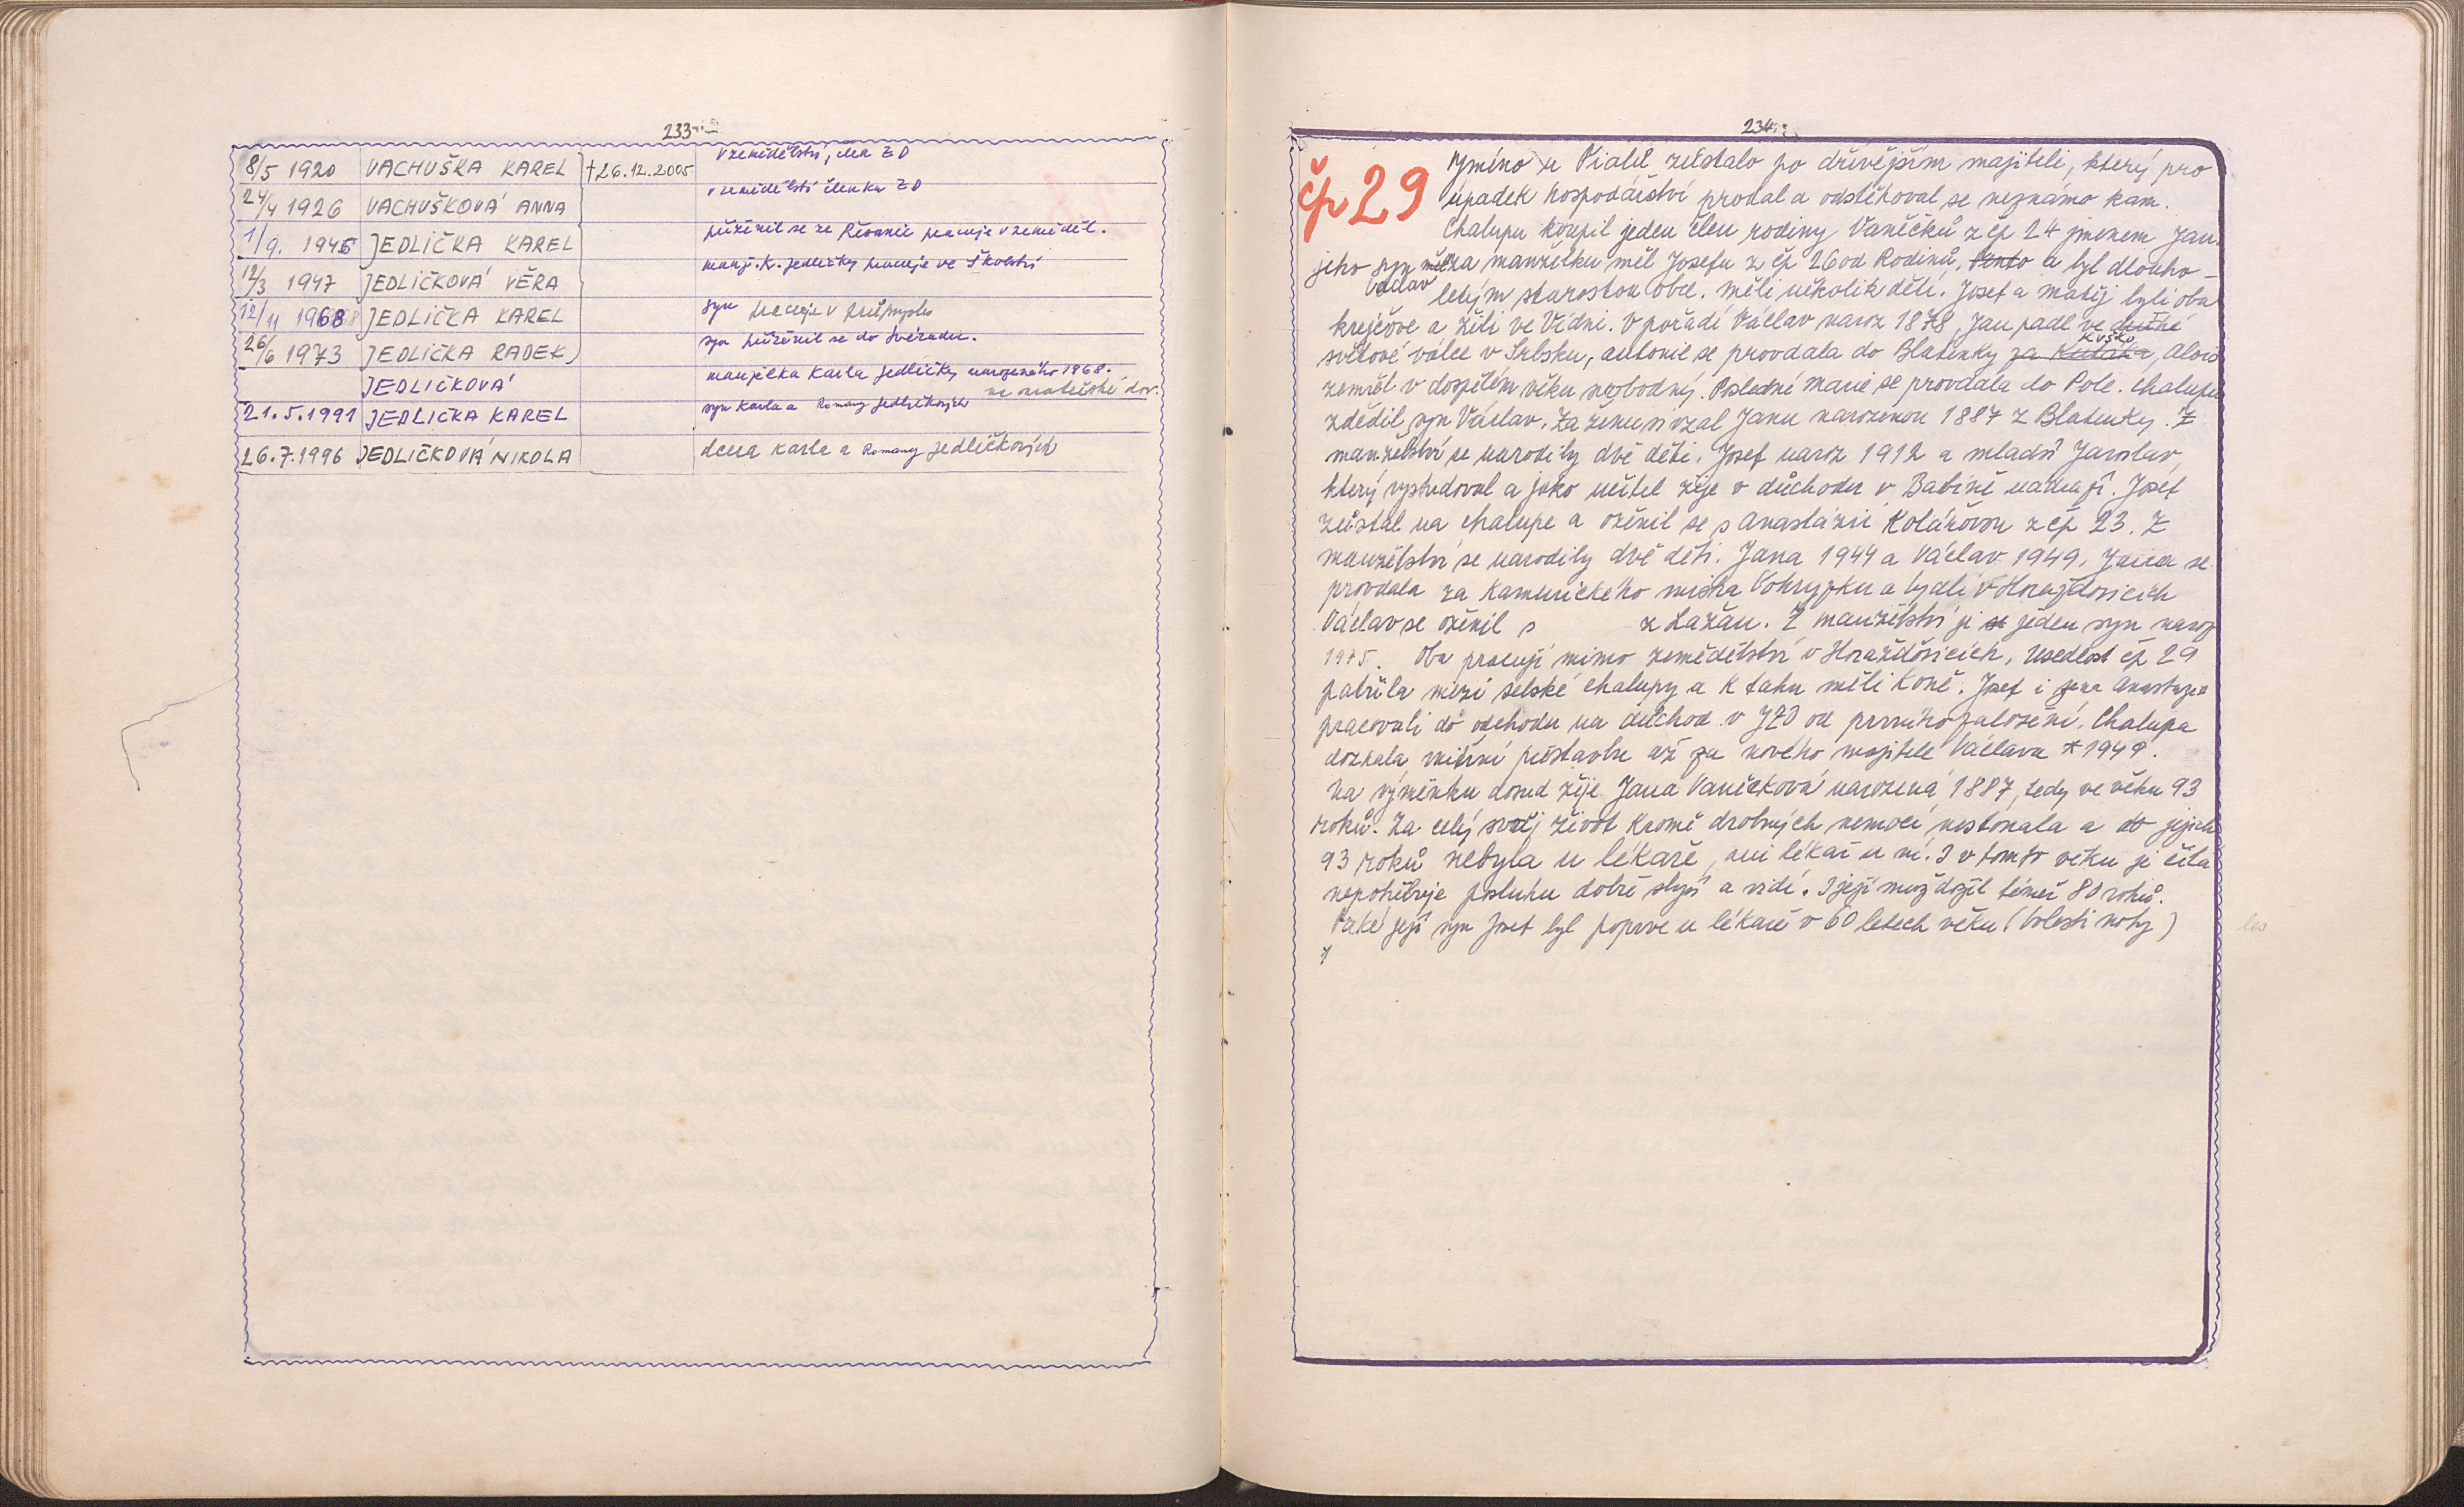 233
8/5 1920 VACHUŠKA KAREL †26.12.2005 v zemědělství, člen ZD
24/4 1926 VACHUŠKOVÁ ANNA v zemědělství členka ZD
1/9. 1946 JEDLIČKA KAREL přiženil se ze Řesanic pracuje v zeměděl.
12/3 1947 JEDLIČKOVÁ VĚRA manž. K. Jedličky pracuje ve školství
12/11 1968 JEDLIČKA KAREL syn pracuje v průmyslu
26/6 1973 JEDLIČKA RADEK syn přiženil se do Svéradic.
JEDLIČKOVÁ manželka Karla Jedličky narozeného 1968. na mateřské dov.
21.5.1991 JEDLIČKA KAREL syn Karla a Romany Jedličkových
26.7.1996 JEDLIČKOVÁ NIKOLA dcera Karla a Romany Jedličkových
234
čp 29
Jméno u zůstalo po dřívějším majiteli, který pro
úpadek hospodářství prodal a odstěhoval se neznámo kam.
Chalupu koupil jeden člen rodiny Vaněčků z čp 24 jménem Jan.
jeho syn Václav za manželku měl Josefu z čp 26 od Rodinů, Tento a byl dlouho-
letým starostou obce. měli několik dětí. Josef a Matěj byli oba
krejčove a žili ve Vídni. V pořadí Václav naroz 1878, Jan padl ve druhé
světové válce v Srbsku, antonie se provdala do Blatenky za Kutáka, Alois
zemřel v dospělém věku svobodný. Poslední Marie se provdala do Pole. Chalupu
zdědil syn Václav. Za ženu si vzal Janu narozenou 1887 z Blatenky. Z
manželství se narodily dvě děti. Josef naroz 1912 a mladší Jaroslav,
který vystudoval a jako učitel žije v důchodu v Babíně. Josef
zůstal na chalupe a oženil se s Anastázií Kolářovou z čp 23. Z
manželství se narodily dvě děti. Jana 1944 a Václav 1949. Jana se
provdala za Kamenického mistra Vokryzku a bydlí v Horažďovicích
Václav se oženil s z Lažan. Z manželství je se jeden syn naroz
1975. Oba pracují mimo zemědělství v Horažďovicích, Usedlost čp 29
patřila mezi selské chalupy a k tahu měli Koně. Josef i žena Anastazie
pracovali do odchodu na důchod v JZD od prvního založení. Chalupa
doznala vnitřní přestavbu až za nového majitele Václava * 1949.
Na výměnku dosud žije Jana Vaněčková narozená 1887, tedy ve věku 93
roků. Za celý svůj život kromě drobných nemocí nestonala a do jejich
93 roků nebyla u lékaře, ani lékař u ní. I v tomto věku je čilá
nepotřebuje posluhu dobře slyší a vidí. I její muž dožil téměř 80 roků.
Také její syn Josef byl poprve u lékaře v 60 letech věku (bolesti nohy)